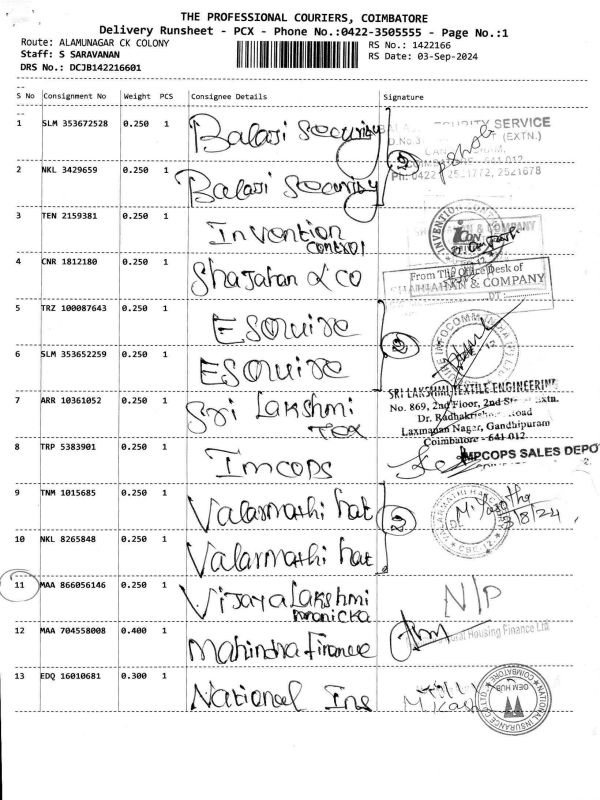 THE PROFESSIONAL COURIERS, COIMBATORE
Delivery Runsheet - PCX - Phone No.:0422-3505555 - Page No.:1
Route: ALAMUNAGAR CK COLONY
RS No.: 1422166
Staff: S SARAVANAN
RS Date: 03-Sep-2024
DRS No.: DCJB142216601
S No Consignment No Weight PCS Consignee Details Signature
1 SLM 353672528 0.250 1 Balaji Security
SECURITY SERVICE
(EXTN.)
2 NKL 3429659 0.250 1 Balaji Security 2
Ph: 0422 2521772, 2521678
3 TEN 2159381 0.250 1 Invention
4 CNR 1812180 0.250 1 Shajahan & CO
From The Office Desk of
SHAHJAHAN & COMPANY
DT:
5 TRZ 100087643 0.250 1 Esquire
6 SLM 353652259 0.250 1 Esquire 2
7 ARR 10361052 1 0.250 Sri Lakshmi
Tex
SRI LAKSHMI TEXTILE ENGINEERING
No. 869, 2nd Floor, 2nd Street Extn.
Dr. Radhakrishnan Road
Laxmanan Nagar, Gandhipuram
Coimbatore - 641 012
8 TRP 5383901 0.250 1 Imcops
IMPCOPS SALES DEPO
9 TNM 1015685 0.250 1 Valarmathi hat
10 NKL 8265848 0.250 1 Valarmathi hat 2
11 MAA 866056146 0.250 1 Vijaya Lakshmi N/P
12 MAA 704558008 0.400 1 Mahindra Finance
Rural Housing Finance Ltd
13 EDQ 16010681 0.300 1 National Ins